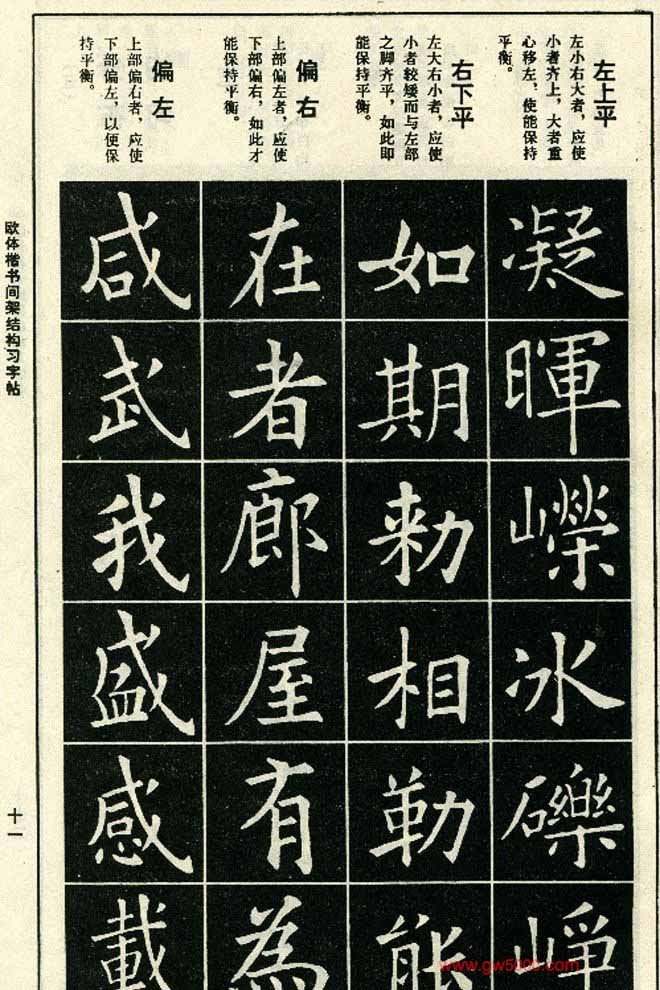 左上平
左小右大者，应使
小者齐上，大者重
心移左，使能保持
平衡。
凝
暉
嶸
冰
礫
崢
右下平
左大右小者，应使
小者较矮而与左部
之脚齐平，如此即
能保持平衡。
如
期
勑
相
勒
能
偏右
上部偏左者，应使
下部偏右，如此才
能保持平衡。
在
者
廊
屋
有
為
偏左
上部偏右者，应使
下部偏左，以便保
持平衡。
咸
武
我
盛
感
載
欧体楷书间架结构习字帖
十一
www.gw5000.com